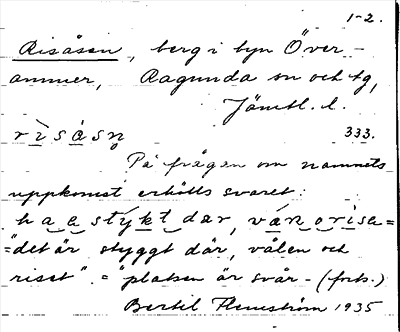 1-2.
Risåsen, berg i byn Över-
ammer, Ragunda sn och tg,
Jämtl. l.
rìsásn̥ 333.
På frågan om namnets
uppkomst erhölls svaret:
ha a stýkt dar, vál n o risa =
= "det är styggt där, vålen och
riset". = "platsen är svår- (forts.)
Bertil Flemström 1935